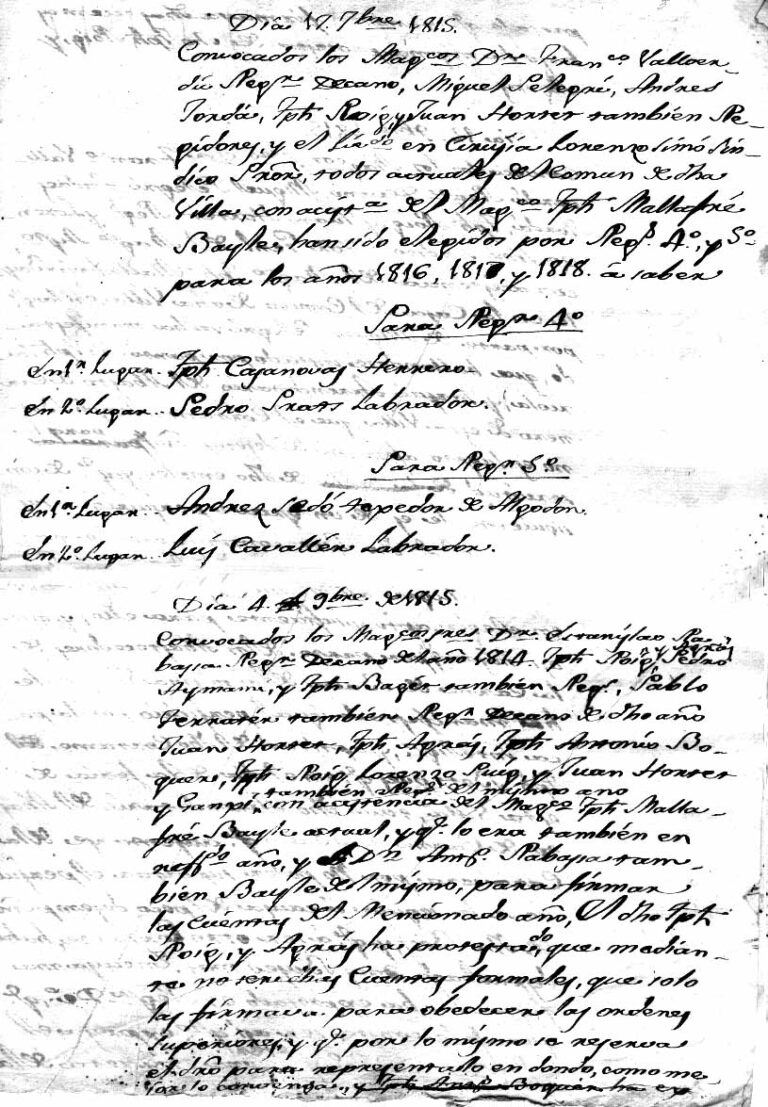 Dia 17. 7bre 1815.
Convocados los Magcos Dr. Franco Valloer-
du Regr. Decano, Miquel Pelegrí, Andres
Jordá, Jph Roig, y Juan Horter tambien Re-
gidores, y el Lizdo en Cirujia Lorenzo Simó Sin-
dico Pror, todos actuales del Comun de dha
Villa, con acista del Magco Jph Mallafré
Bayle, han sido elegidos por Regs. 4o, y 5o
para los años 1816, 1817, y 1818. á saber
Para Regr. 4o
En 1r. Lugar. Jph Casanovas Herrero.
En 2o. Lugar.. Pedro Prats Labrador.
Para Regr. 5o
En 1r. Lugar.. Andrez Sedó texedor de Algodon.
En 2o. Lugar.. Luis Cavallér Labrador.
Dia 4. 9bre. de 1815.
Convocados los Magcos Sres Dn. Estanislao Ra-
basa Regr. Decano del año 1814. Jph Roig, y Agrás Pedro
Aymami, y Jph Bagés tambien Regs, Pablo
Ferratér tambien Regr. Decano de dho año
Juan Horter, Jph Agrás, Jph Antonio Bo-
quer, Jph Roig, Lorenzo Puig, y Juan Horter
tambien Regs. del mismo año
y Granpi, con acistencia del Magco Jph Malla-
fré Bayle actual, y q. lo era tambien en
reffdo año, y Dn. Anto. Rabasa tam-
bien Bayle del mismo, para firmar
las Cuentas del Mencionado año, el dho Jph
Roig, y Agrás ha protestado, que median-
te no ser dhas Cuentas formales, que solo
las firmava para obedecer las ordenes
superiores, y q. por lo mismo se reserva
el dro para representarlo en donde, como me-
jor lo convenga, y Jph Anto. Boquer ha ex